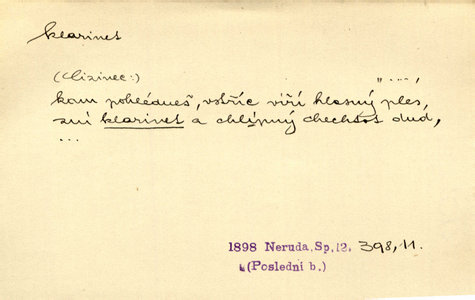 klarinet
(Cizinec:) "...,
kam pohlédneš, vstříc víří hlasný ples,
zní klarinet a chlípný chechtot dud,
...
1898 Neruda, Sp. 12, 398, 11.
(Poslední b.)